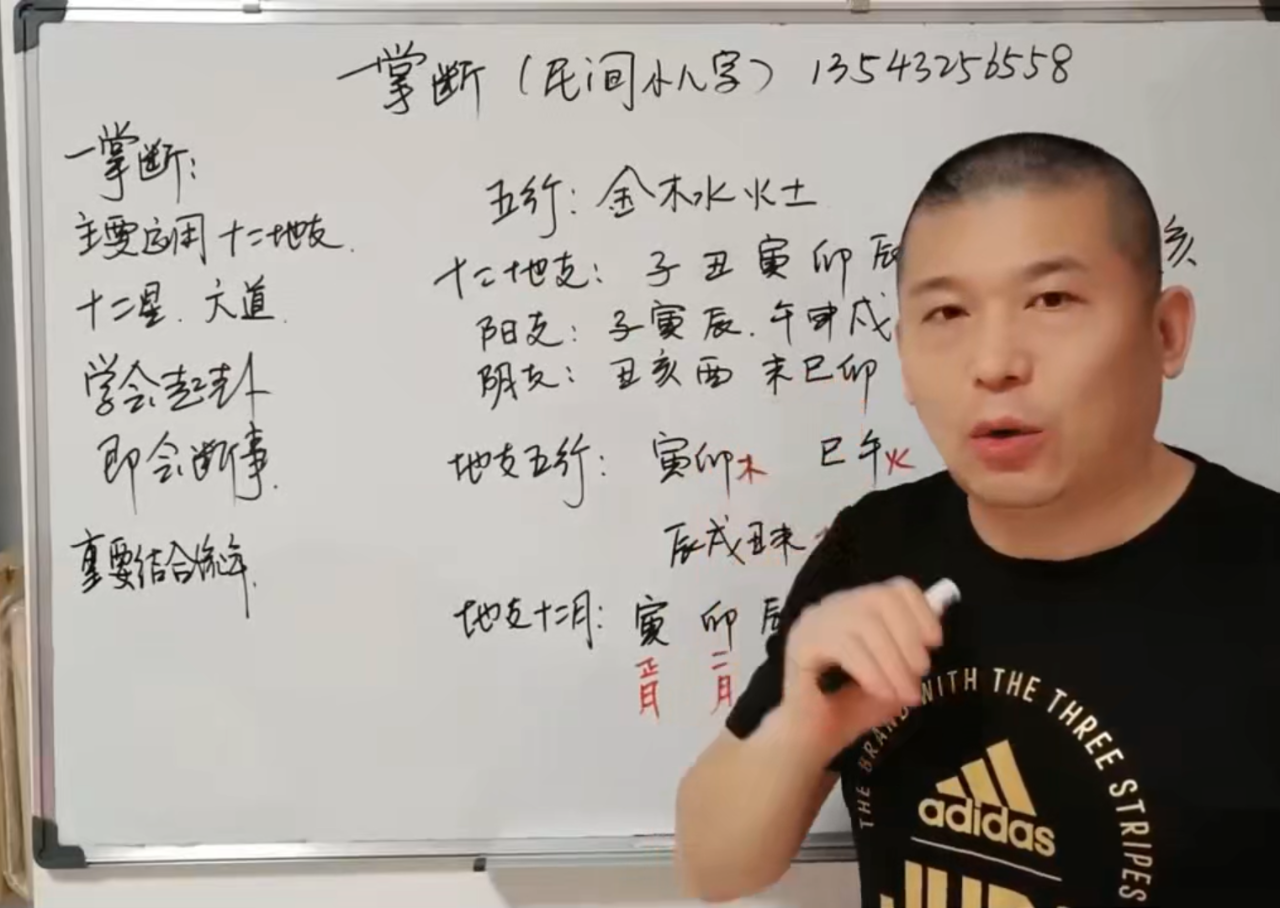 一掌断（民间小八字）13543256558
一掌断：
主要运用十二地支.
十二星.六道.
学会起卦
即会断事.
重要结合流年.
五行：金木水火土
十二地支：子丑寅卯辰 亥
阳支：子寅辰.午申戌
阴支：丑亥酉 未巳卯
地支五行：寅卯木 巳午火
辰戌丑未
地支十二月：寅 卯 辰
正月 二月
THE BRAND WITH THE THREE STRIPES
adidas